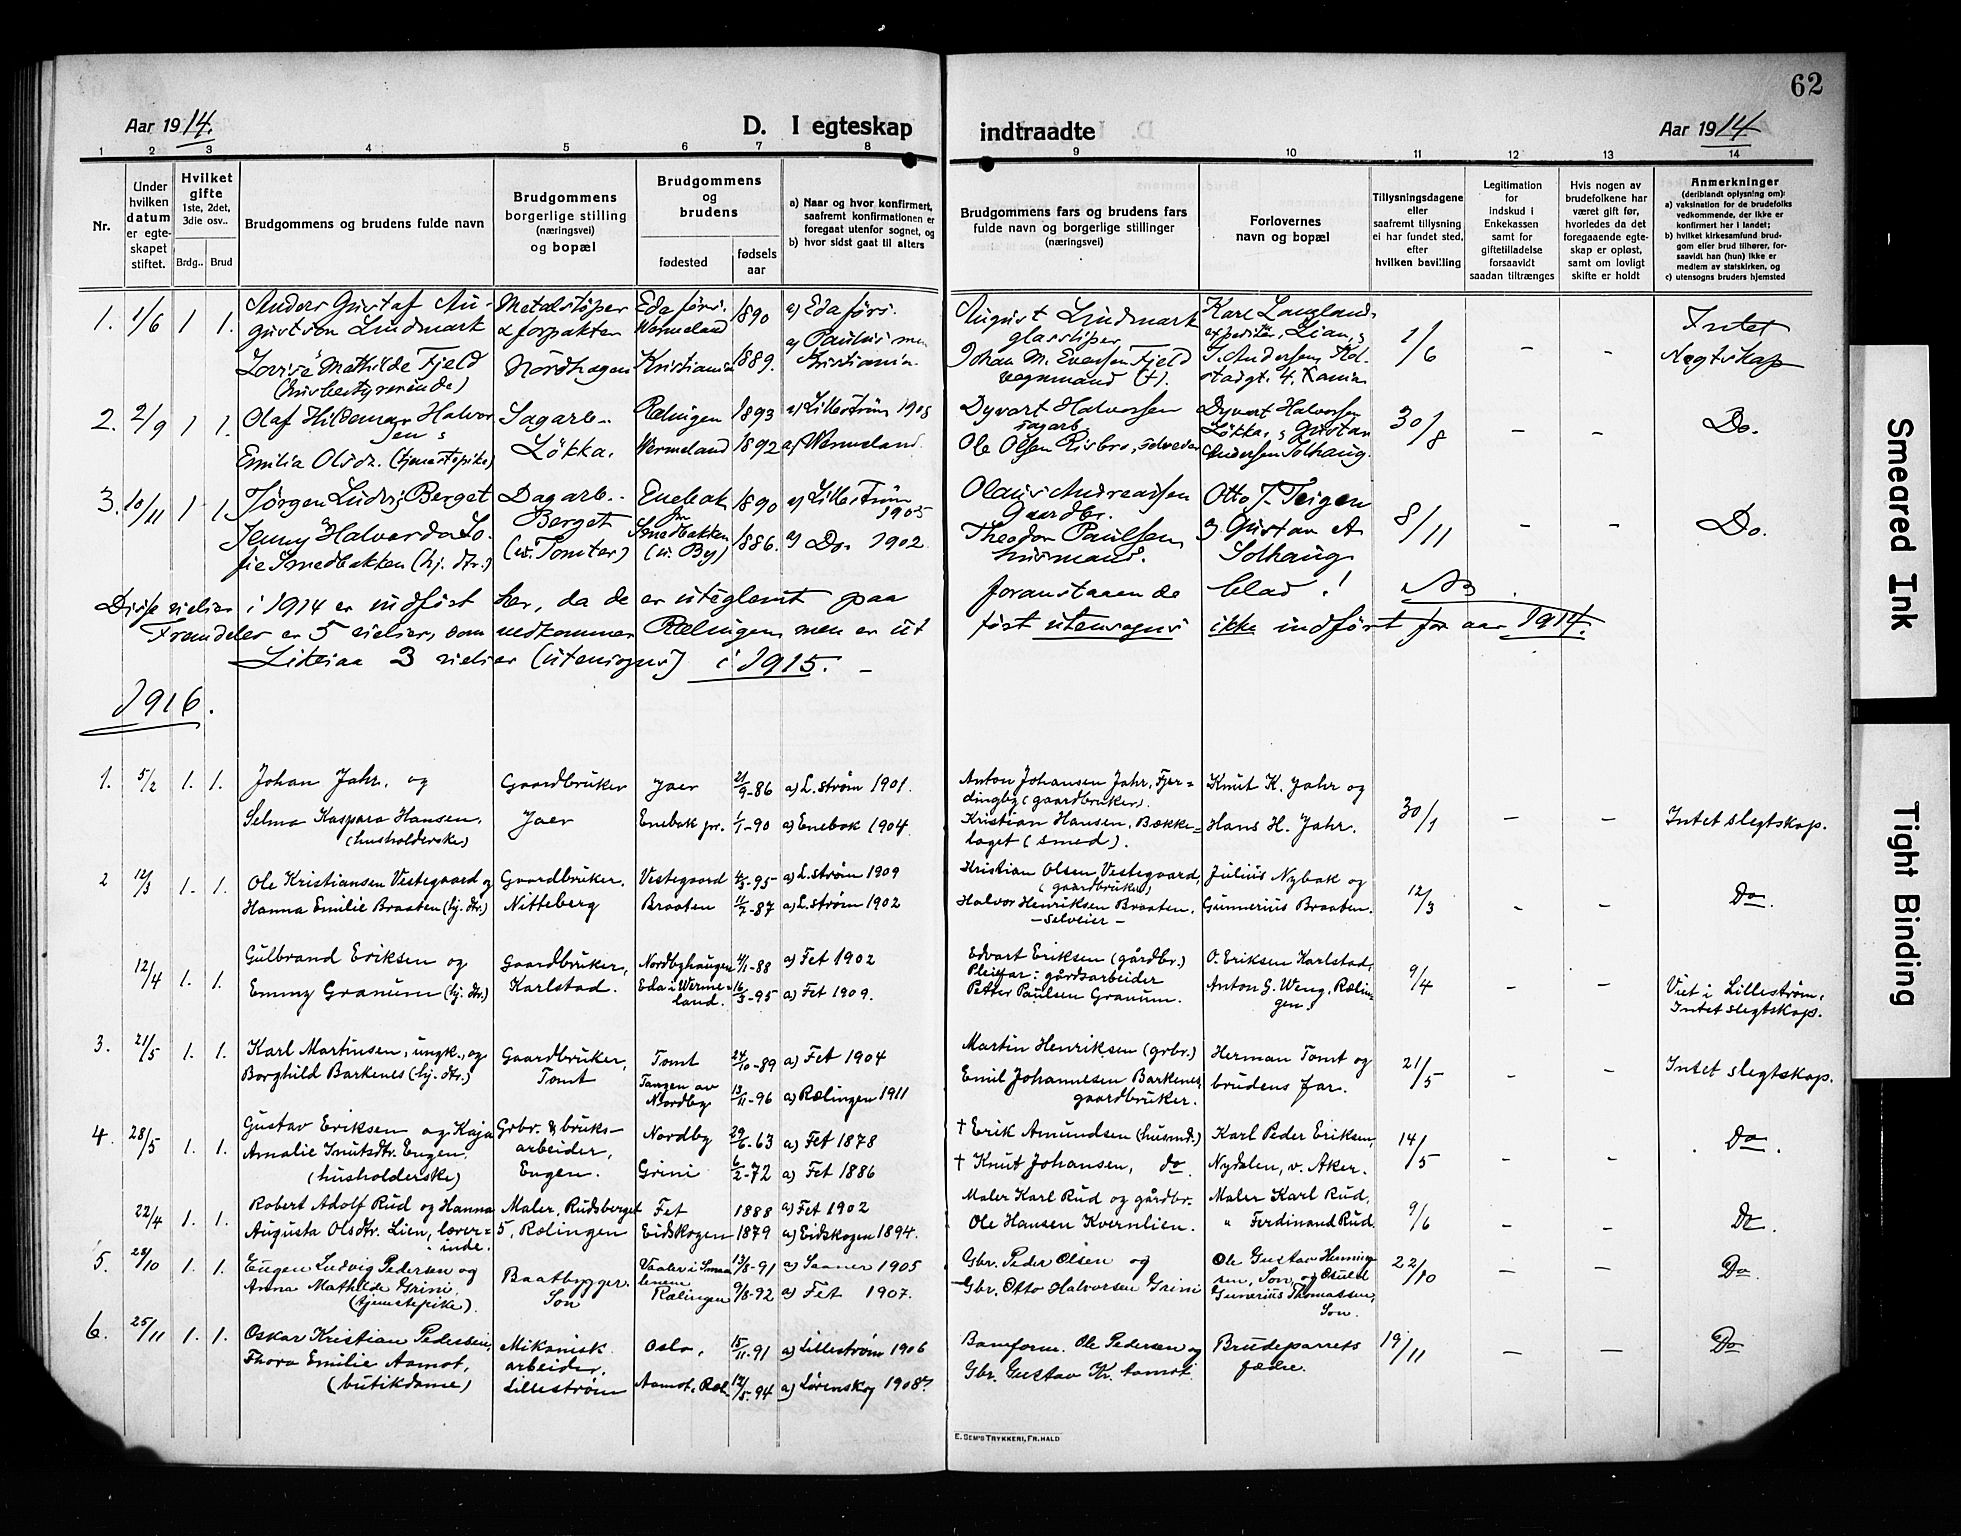 62
Aar 1914.
D. I egteskap indtraadte
Aar 1914
1 2 3 4 5 6 7 8 9 10 11 12 13 14
Nr.
Under hvilken datum er egteskapet stiftet.
Hvilket gifte 1ste, 2det, 3die osv..
Brdg.. Brud
Brudgommens og brudens fulde navn
Brudgommens borgerlige stilling (næringsvei) og bopæl
Brudgommens og brudens
fødested
fødsels aar
a) Naar og hvor konfirmert, saafremt konfirmationen er foregaat utenfor sognet, og
b) hvor sidst gaat til alters
Brudgommens fars og brudens fars fulde navn og borgerlige stillinger (næringsvei)
Forlovernes navn og bopæl
Tillysningsdagene eller saafremt tillysning ei har fundet sted, efter hvilken bevilling
Legitimation for indskud i Enkekassen samt for giftetilladelse forsaavidt saadan tiltrænges
Hvis nogen av brudefolkene har været gift før, hvorledes da det foregaaende egteskap er opløst, samt om lovligt skifte er holdt
Anmerkninger (deriblandt oplysning om):
a) vaksination for de brudefolks vedkommende, der ikke er konfirmert her i landet;
b) hvilket kirkesamfund brudgom eller brud tilhører, forsaavidt han (hun) ikke er medlem av statskirken, og
c) utensogns bruders hjemsted
1. 1/6 1 1. Anders Gustaf Au-
gustson Lindmark
Lovise Mathilde Fjeld
(husbestyrerinde)
Metalstøper
& forpakter
Nordhagen
Eda førs.
Vermeland 1890
Kristiania 1889.
a) Eda førs.
a) Paulus men
Kristiania.
August Lindmark
glasstøper
Johan M. Evensen Fjeld
vognmand (+).
Karl Langland,
expeditør, Lian, &
J. Andersen,
4. Kania
1/6 – – Intet
slegtskap
2. 2/9 1 1. Olaf Hildemar Halvor
sen &
Emilia Olsdr. (tjenestepike)
Sagarb..
Løkka.
Rælingen 1893
Vermeland 1892
a) Lillestrøm 1908
a) Vermeland.
Dyvart Halvorsen
sagarb.
Ole Olsen Risbro, Sverige
Dyvart Halvorsen
Løkka, & Gustav
Andersen Solhaug.
30/8 – – Do.
3. 10/11 1 1. Jørgen Ludvig Berget
&
Jenny Halverda So-
fie Smedbakken (hj. dtr.)
Dagarb..
Berget
(u. Tomter)
Enebak
pr. 1890
Smedbakken
(u. By) 1886.
a) Lillestrøm
1905
a) Do. 1902
Olaus Andreassen
Gaardbr.
Theodor Paulsen
husmand.
Otto T. Teigen
& Gustav A
Solhaug
8/11 – – Do.
Disse vielser i 1914 er indført her, da de er uteglemt paa foranstaaende blad! NB.
Fremdeles er 5 vielser, som vedkommer Rælingen, men er utført utensogns ikke indført for aar 1914.
Likesaa 3 vielser (utensogns) i 1915. –
1916.
1. 5/2 1. 1. Johan Jahr, og
Selma Kaspara Hansen,
(husholderske)
Gaardbruker
Jaer
Jaer 21/9-86
Enebak pr. 1/1-90
a) L.strøm 1901.
a) Enebak 1904.
Anton Johansen Jahr, Fjer-
dingby (gaardbruker).
Kristian Hansen, Bække-
laget (smed).
Knut K. Jahr og
Hans H. Jahr.
30/1 – – Intet slegtskap.
2 12/3 1. 1. Ole Kristiansen Vestegaard og
Hanna Emilie Braaten (hj. dtr.)
Gaardbruker.
Nitteberg
Vestegaard 4/3-95
Braaten 11/7-87
a) L.strøm 1909
a) L.strøm 1902
Kristian Olsen Vestegaard,
(gaardbruker)
Halvor Henriksen Braaten.
– selveier –
Julius Nybak og
Gunnerius Braaten.
12/3 – – Do.
12/4 1. 1. Gulbrand Eriksen og
Emmy Granum (hj. dtr.)
Gaardbruker,
Karlstad.
Nordbyhaugen 4/1-88
Eda i Werme-
land. 16/3-95
a) Fet 1902
a) Fet 1909.
Edvart Eriksen (gårdbr.)
Pleiefar: gårdsarbeider
Petter Paulsen Granum.
O. Eriksen Karlstad,
Anton G. Weng, Rælin-
gen.
9/4 – – Viet i Lillestrøm.
Intet slegtskap.
3. 21/5 1. 1. Karl Martinsen, ungk., og
Borghild Barkenes (hj. dtr.)
Gaardbruker,
Tomt
Tomt 24/10-89
Tangen av
Nordby 13/11-96
a) Fet 1904
a) Rælingen 1911
Martin Henriksen (grbr.)
Emil Johannesen Barkenes,
gaardbruker.
Herman Tomt og
brudens far.
21/5 – – Intet slegtskap.
4. 28/5 1. 1. Gustav Eriksen og Kaja
Amalie Knutsdtr. Engen.
(husholderske)
Grbr. & bruks-
arbeider,
Engen.
Nordby 29/6-63
Grini 6/2-72
a) Fet 1878
a) Fet 1886
† Erik Amundsen (husmd.)
† Knut Johansen, do.
Karl Peder Eriksen,
Nydalen, v. Aker.
14/5 – – Do.
22/4 1. 1. Robert Adolf Rud og Hanna
Augusta Olsdtr. Lien, lærer-
inde.
Maler, Rudsberget
5, Rælingen
Fet 1888
Eidskogen 1879
a) Fet 1902
a) Eidskogen 1894.
Maler Karl Rud og gårdbr.
Ole Hansen Kvernlien.
Maler Karl Rud,
" Ferdinand Rud.
9/6 – – Do.
5. 28/10 1. 1. Eugen Ludvig Pedersen og
Anna Mathilde Grini.
(tjenestepike).
Baatbygger.
Son
Vaaler i Smaa
lenene 13/8-91
Rælingen 9/8-92
a) Saaner 1905
a) Fet 1907.
Gbr. Peder Olsen og
Gbr. Otto Halvorsen Grini
Ole Gustav Henning-
sen, Son, og Osvald
Gunerius Thomassen,
Son.
22/10 – – Do.
6. 25/11 1. 1. Oskar Kristian Pedersen,
Thora Emilie Aamot,
(butikdame)
Mikanisk
arbeider,
Lillestrøm
Oslo, 15/11-91
Aamot, Ræl. 12/5-94
a) Lillestrøm 1906
a) Lørenskog 1908?
Banform. Ole Pedersen og
Gbr. Gustav Kr. Aamot.
Brudeparrets
fædre.
19/11 – – Do
E. SEM'S TRYKKERI, FR.HALD
Smeared Ink
Tight Binding